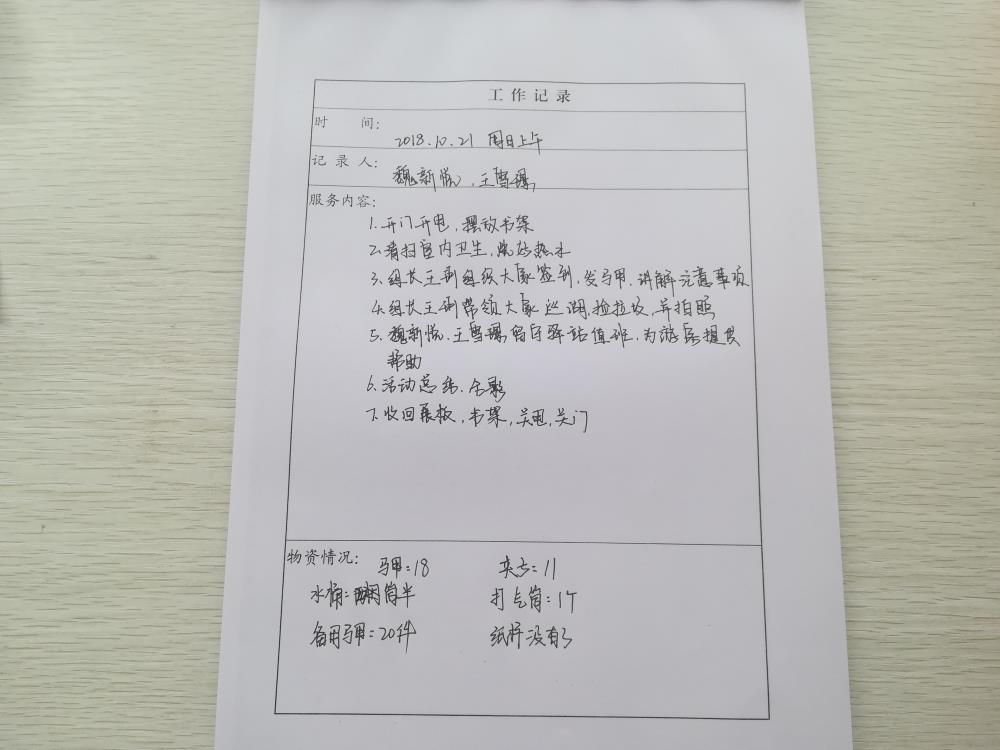 工作记录
时 间:
2018.10.21 周日上午
记录人:
魏新悦、王雪璟
服务内容:
1、开门开电,摆放书架
2、清扫室内卫生,烧好热水
3、组长王刚组织大家签到,发马甲,讲解注意事项
4、组长王刚带领大家巡湖,捡垃圾,并拍照
5、魏新悦、王雪璟留守驿站值班,为游客提供
帮助
6、活动总结、合影
7、收回展板,书架,关电,关门
物资情况: 马甲:18 夹子:11
水桶: 筒半 打气筒:1个
备用马甲:20件 纸杯没有了